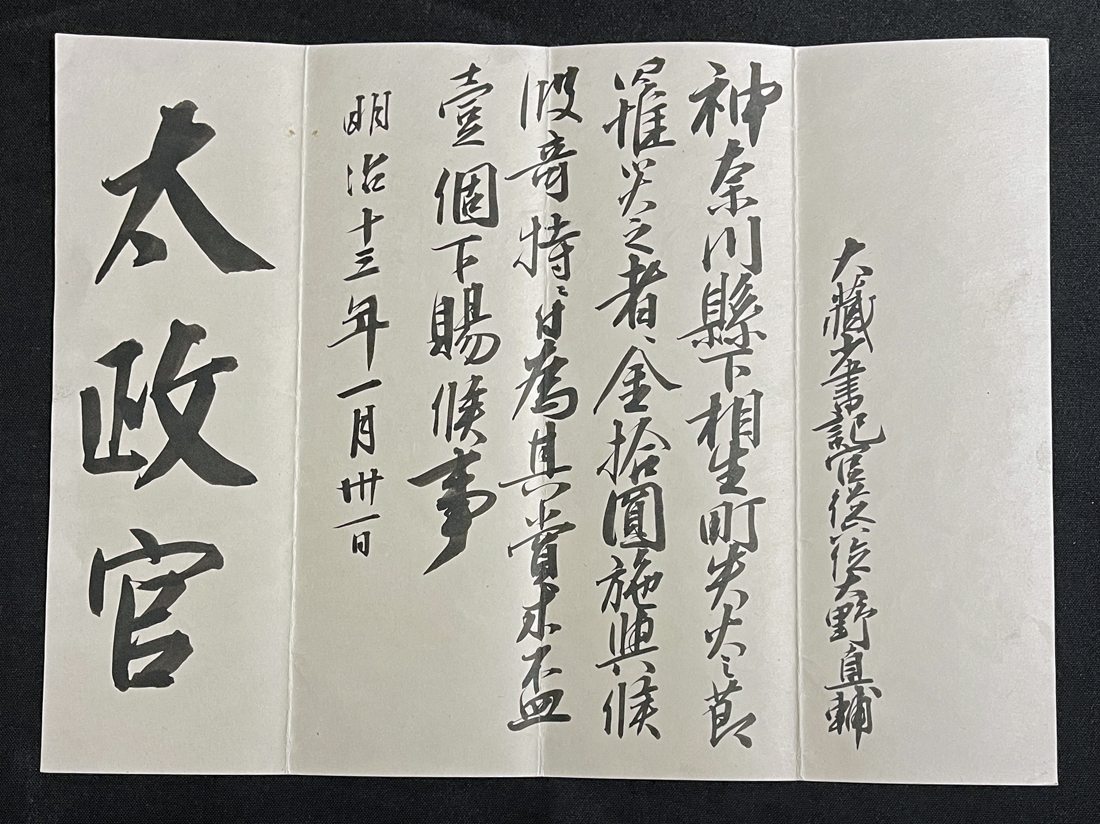 大藏少書記官從六位大野直輔
神奈川縣下相生町失火之節
罹災之者ヘ金拾圓施與候
段奇特ニ付為其賞木盃
壹個下賜候事
明治十三年一月卅一日
太政官